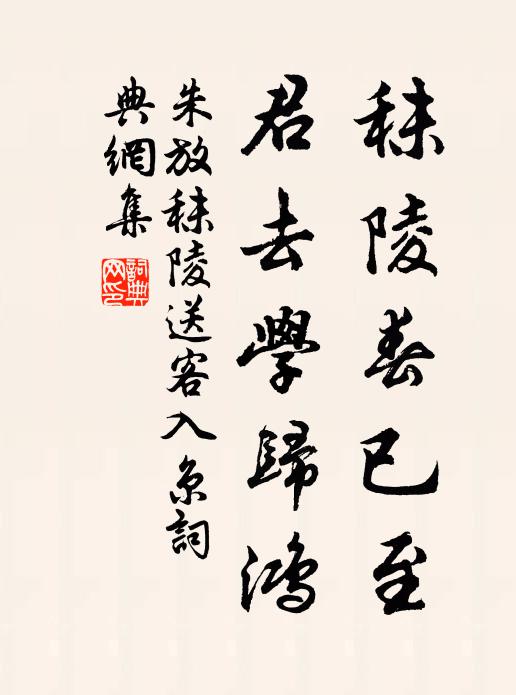 秣陵春已至
君去學歸鴻
朱放秣陵送客入京詞
典網集
詞典
网印